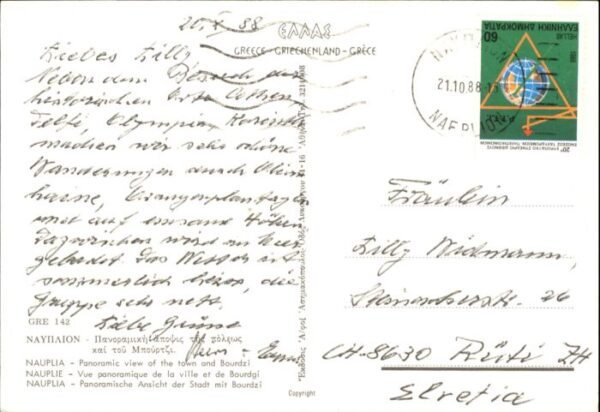 20.X 88
ΕΛΛΑΣ
GREECE - GRIECHENLAND - GRÈCE
Liebes Lilly
Neben dem Besuch der
historischen Orte Athen,
Delfi, Olympia, Korinth
machen wir sehr schöne
Wanderungen durch Oliven
haine, Orangenplantagen
und auf einsame Höhen
Dazwischen wird im Meer
gebadet. Das Wetter ist
sommerlich heiss, die
Gruppe sehr nett.
Liebe Grüsse
GRE 142
ΝΑΥΠΛΙΟΝ - Πανοραμική άποψις της πόλεως
και του Μπούρτζι.
NAUPLIA - Panoramic view of the town and Bourdzi
NAUPLIE - Vue panoramique de la ville et de Bourdgi
NAUPLIA - Panoramische Ansicht der Stadt mit Bourdzi
Copyright
21.10.88
ΝΑΥΠΛΙΟΥ
60
ΕΛΛΗΝΙΚΗ ΔΗΜΟΚΡΑΤΙΑ
HELLAS
1988
Fräulein
Lilly Widmann,
26
CH-8630 Rüti ZH
Elvetia